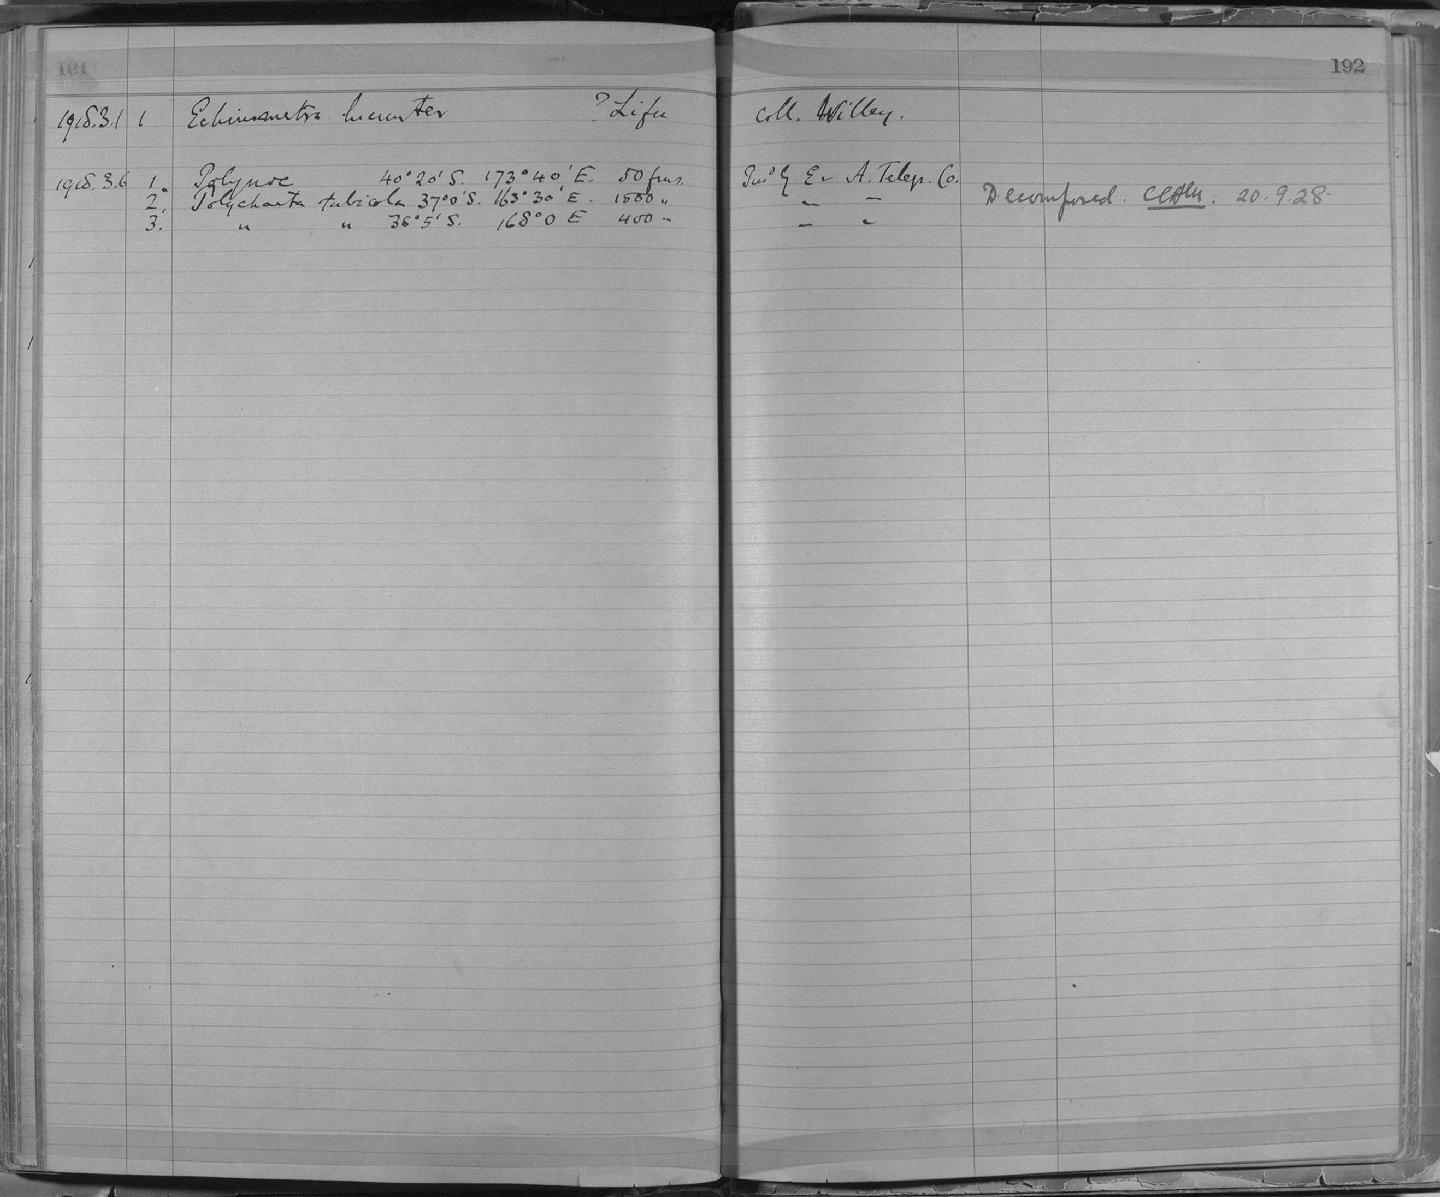 192
1918.3.1 1 Echinometra lucunter ? Lifu Coll. Willey.
1918.3.6 1. Polynoe 40°20' S. 173°40' E. 50 fms. E. & A. Telegr. Co.
2. Polychaeta tubicola 37°0' S. 163°30' E. 1500 " " " Decomposed. 20.9.28
3. " " 36°5' S. 168°0 E 400 " " "